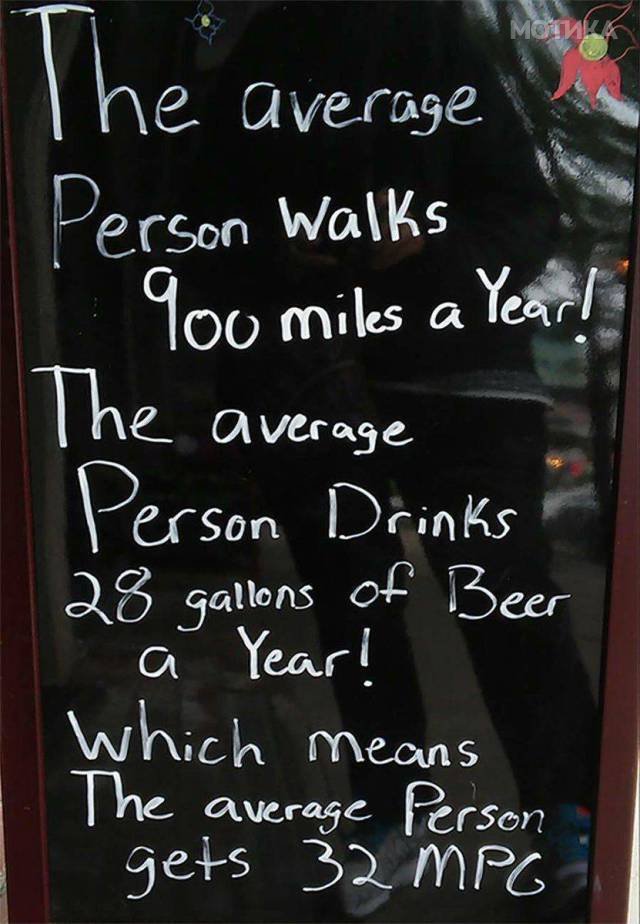 МОТИКА
The average
Person Walks
900 miles a Year!
The average
Person Drinks
28 gallons of Beer
a Year!
which means
The average Person
gets 32 MPG